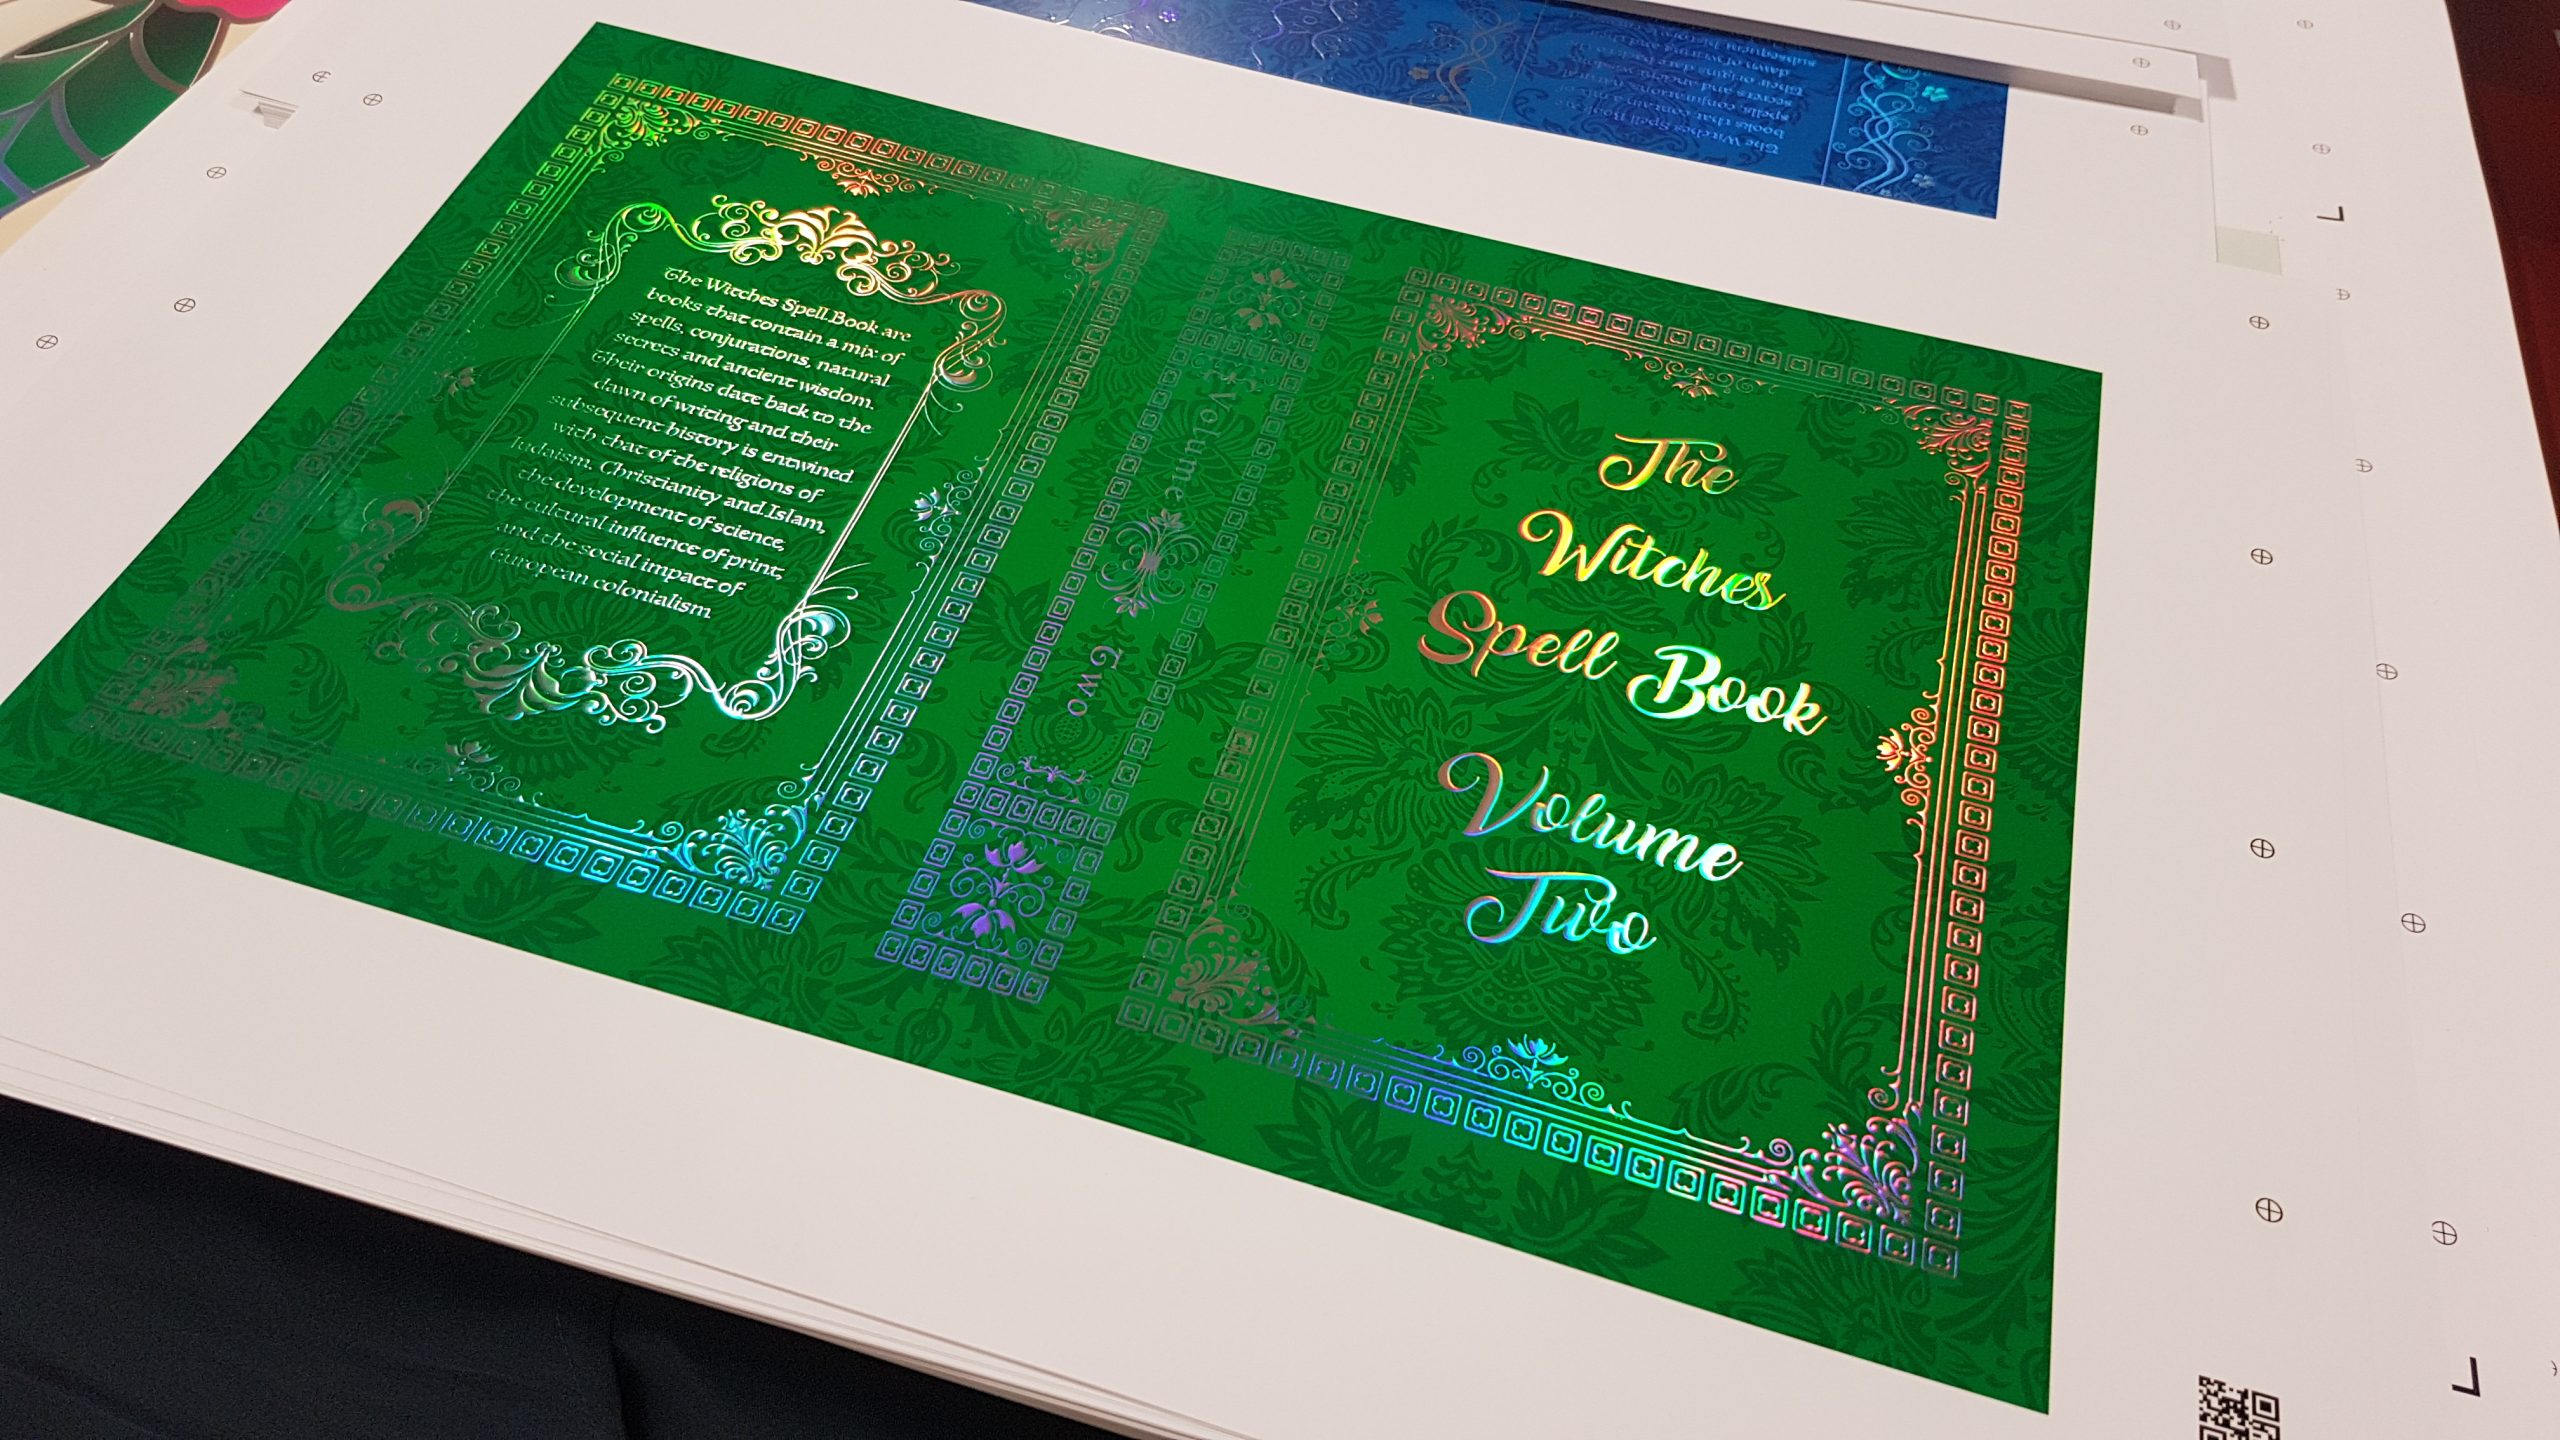 The Witches Spell Book are
books that contain a mix of
spells, conjurations, natural
secrets and ancient wisdom.
Their origins date back to the
dawn of writing and their
subsequent history is entwined
with that of the religions of
Judaism, Christianity and Islam,
the development of science,
the cultural influence of print,
and the social impact of
European colonialism.
Volume
Two
The
Witches
Spell Book
Volume
Two
The Witches Spell Book
books that contain a mix of
spells
secrets and
Their origins
dawn of
subsequent